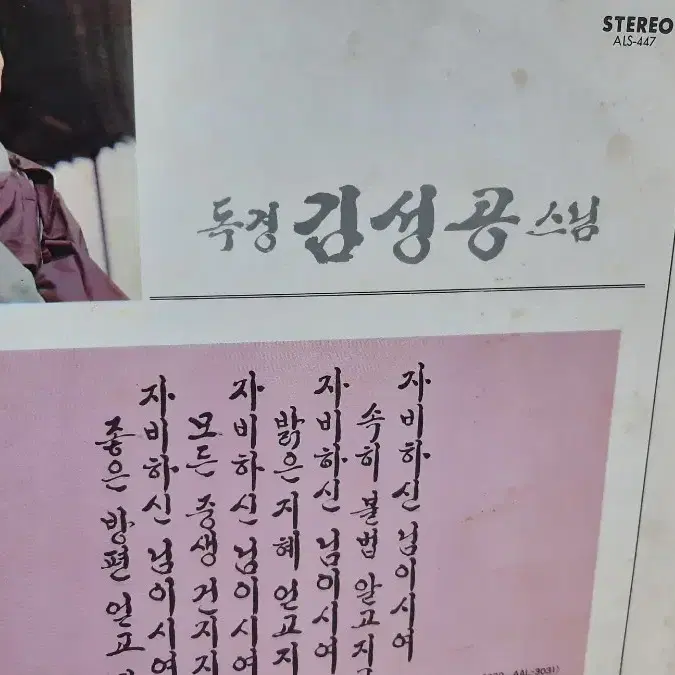 STEREO
ALS-447
독경 김성공 스님
자비하신 님이시여
속히 불법 알고지
자비하신 님이시여
밝은 지혜 얻고지
자비하신 님이시여
모든 중생 건지지
자비하신 님이시여
좋은 방편 얻고
AAL-303